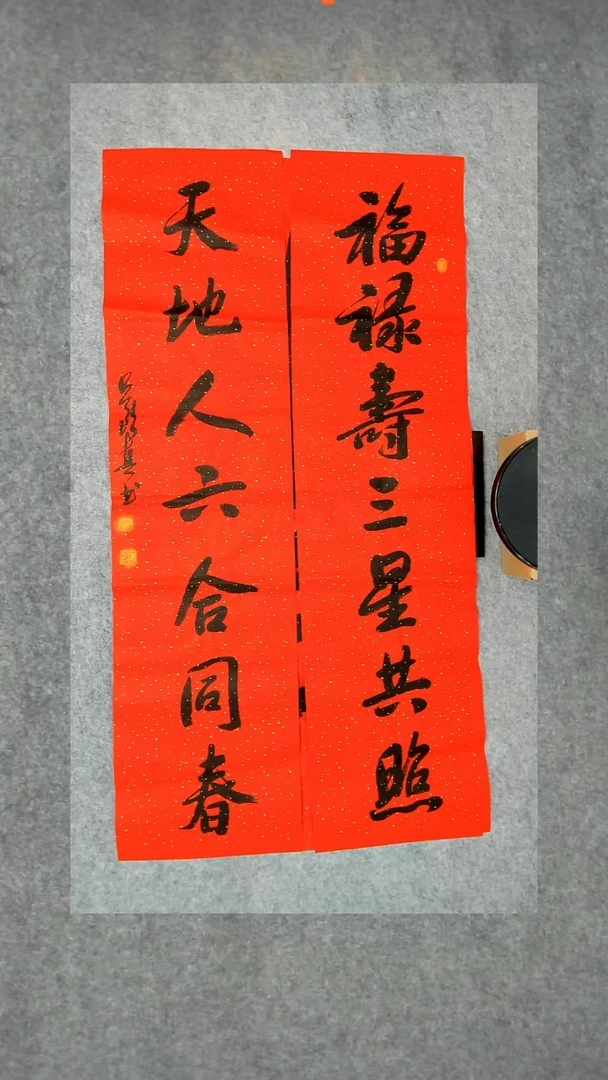 福禄壽三星共照
天地人六合同春